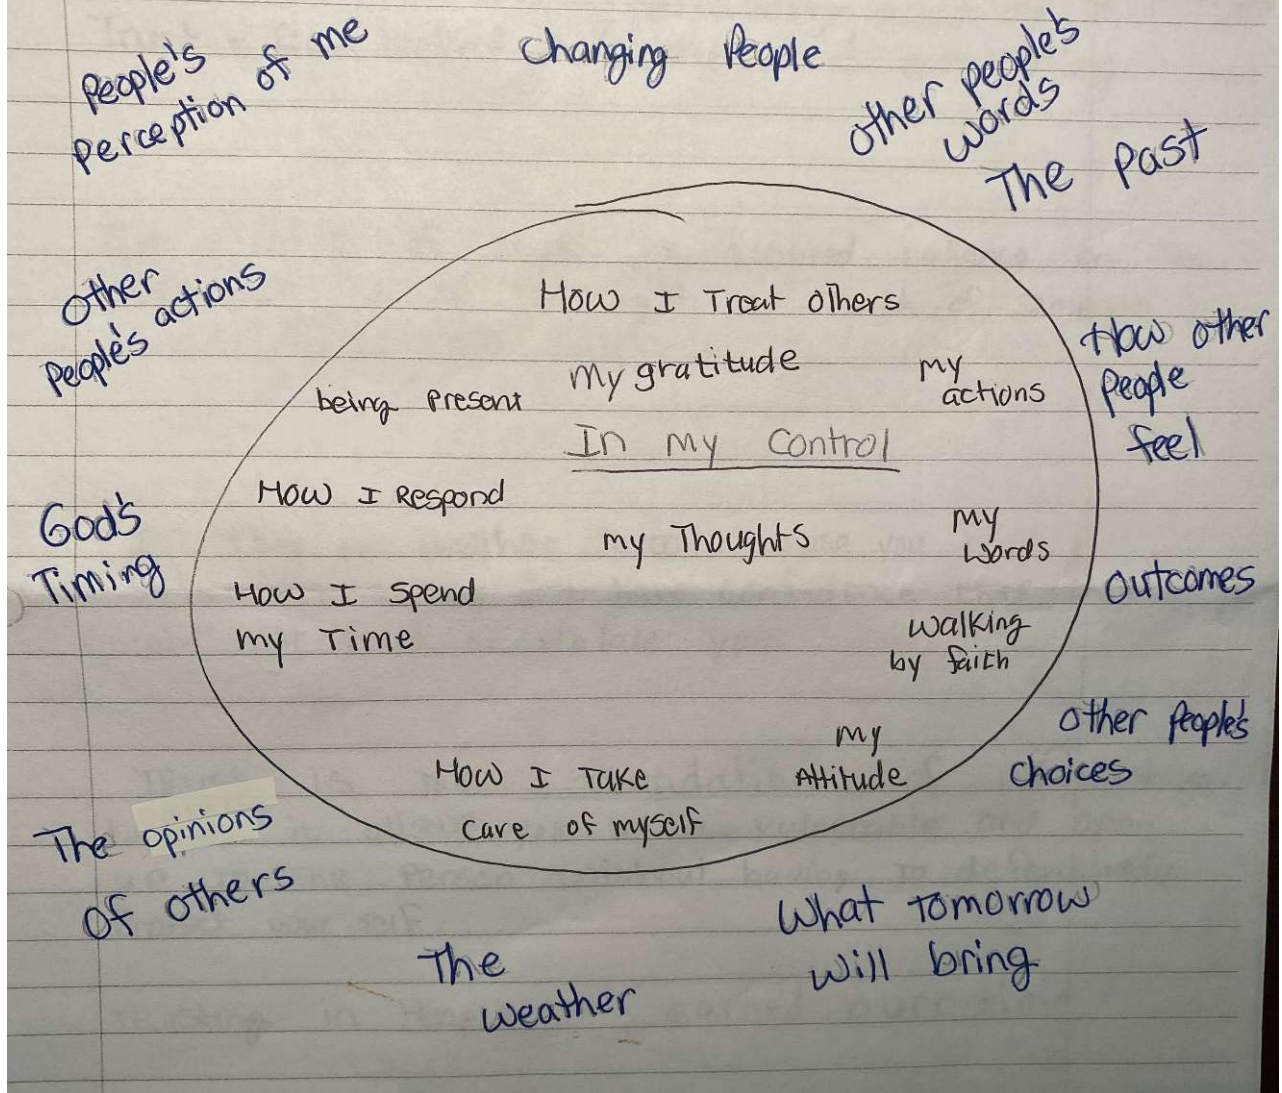 People's
Perception of me
Changing People
other people's
words
The Past
Other
People's actions
How other
People
feel
God's
Timing
Outcomes
other People's
choices
The opinions
Of others
The
weather
What Tomorrow
will bring
How I Treat others
my gratitude
my
actions
being Present
In my Control
How I Respond
my Thoughts
my
words
How I Spend
my Time
walking
by faith
my
Attitude
How I Take
care of myself